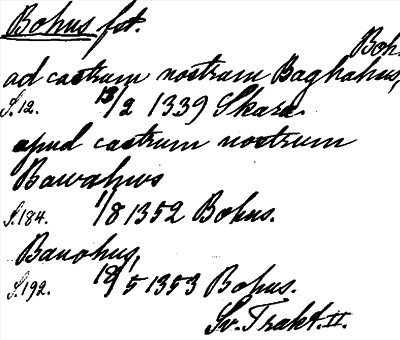 Bohus fst.
Boh.
ad castrum nostrum Baghahus,
S.12. 13/2 1339 Skara.
apud castrum nostrum
Bawahws
S.184. 1/8 1352 Bohus.
Bauohus,
S.192. 19/5 1353 Bohus.
Sv. Trakt. II.